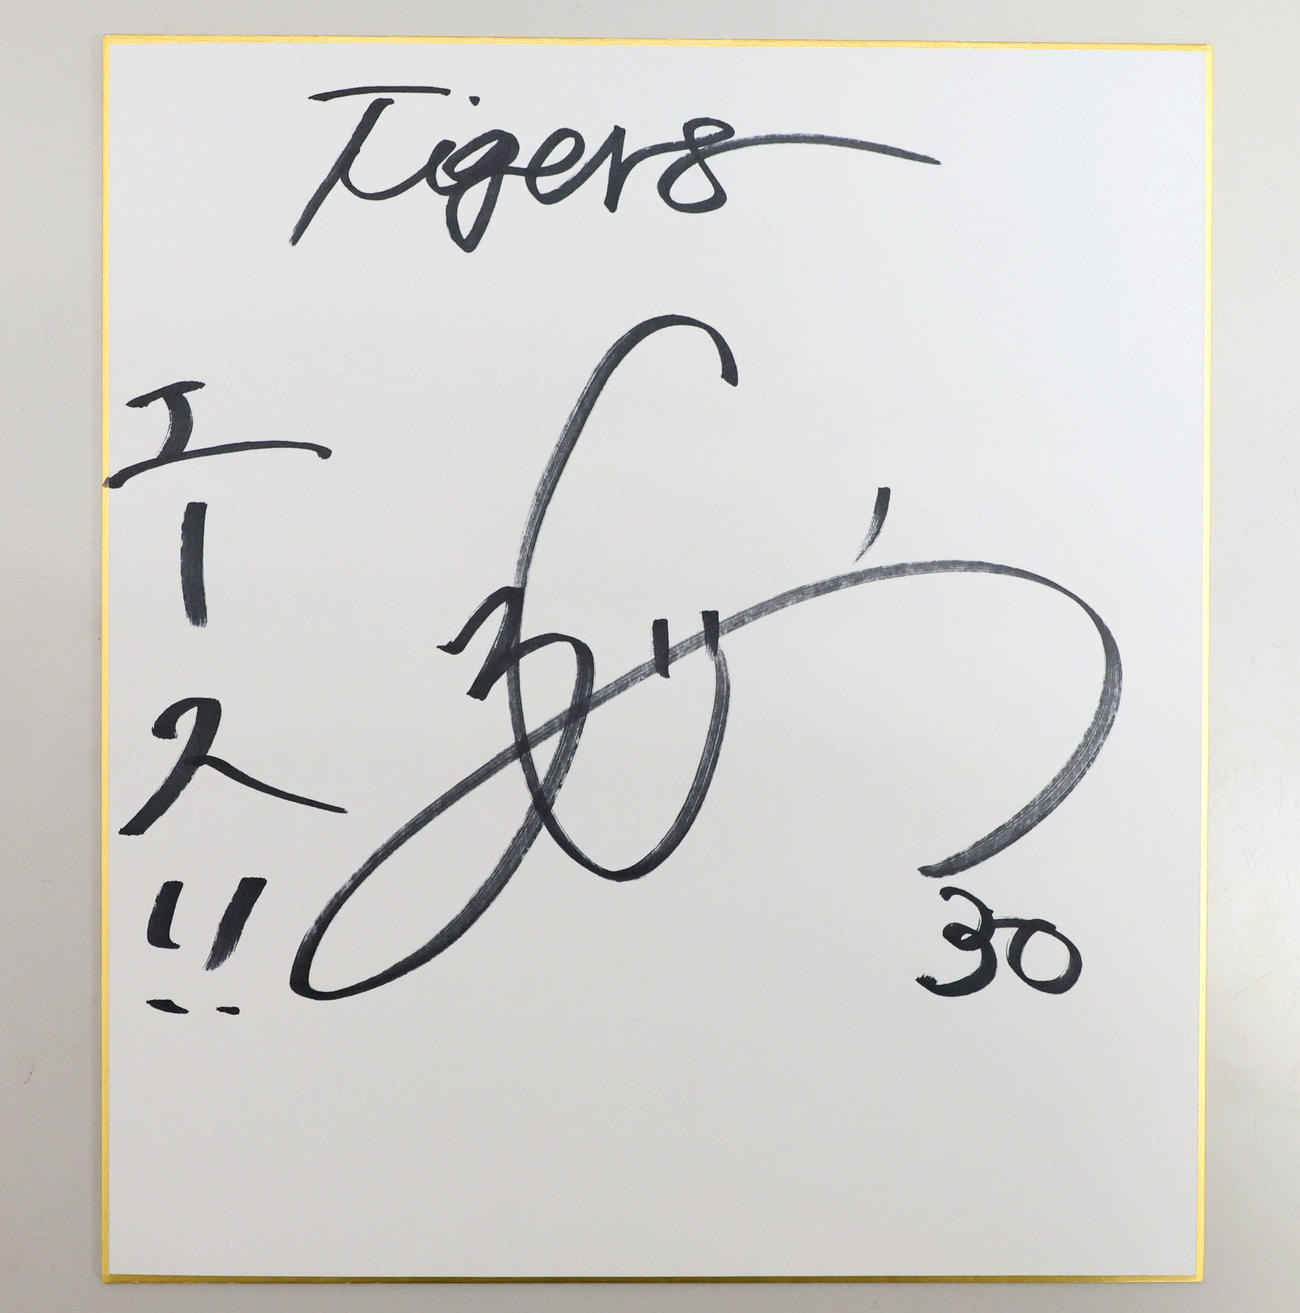 Tigers
エース!!
30